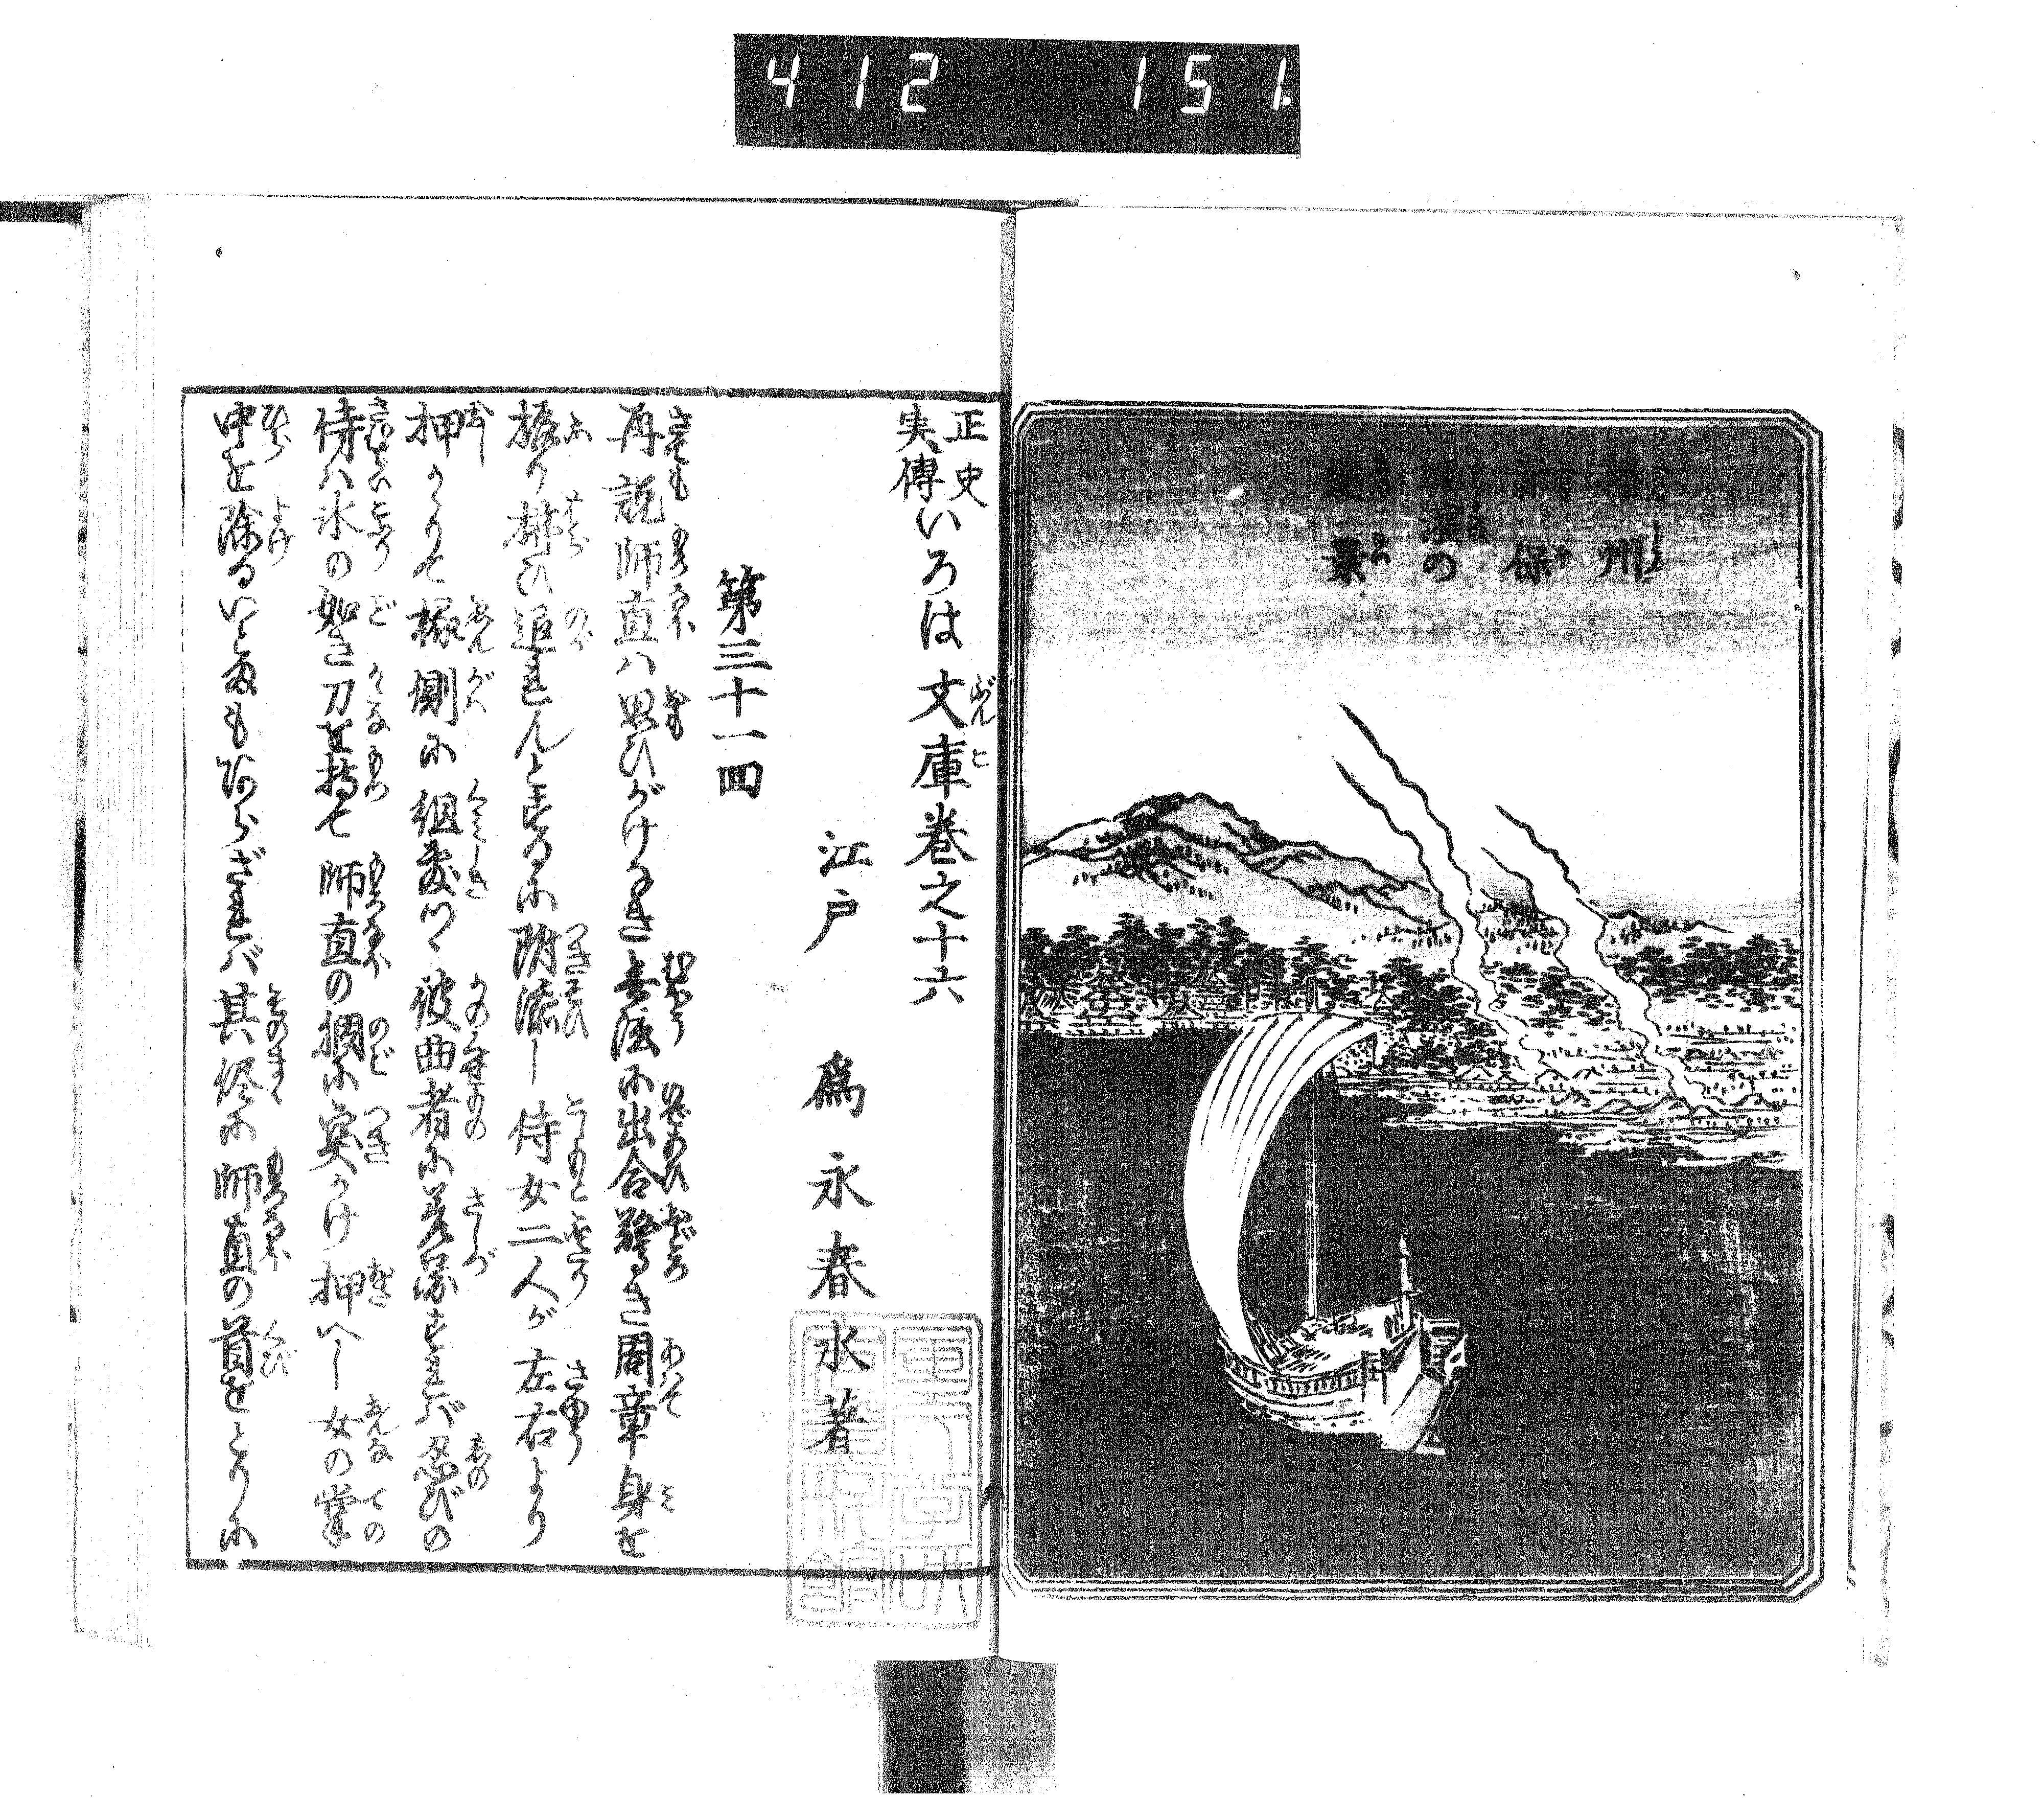 412 151
州
保
濱の
景
正史
実傳
いろは文庫巻之十六
江戸 為永春水著
第三十一回
再説師直ハ思ひがけなき無法に出合驚き周章身を
振り拂ひ迯れんとするに附添し侍女二人が左右より
押かゝりて椽側に組敷つゝ彼曲者に差図すれバ忍びの
侍ハ氷の如き刀を持て師直の吭に突かけ押へし女の掌
中を除るいとまも あらざれバ其侭に師直の首をとりに